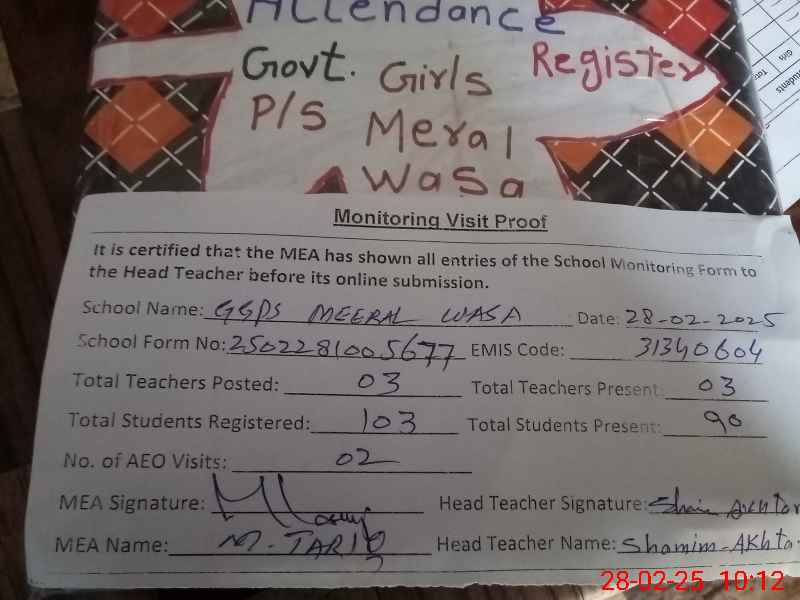 Attendance
Govt. Girls Register
P/S Meral
Wasa
Monitoring Visit Proof
It is certified that the MEA has shown all entries of the School Monitoring Form to
the Head Teacher before its online submission.
School Name: GGPS MEERAL WASA Date: 28-02-2025
School Form No: 2502281005677 EMIS Code: 31340604
Total Teachers Posted: 03 Total Teachers Present: 03
Total Students Registered: 103 Total Students Present: 90
No. of AEO Visits: 02
MEA Signature: Head Teacher Signature: Akhtar
MEA Name: M. TARIQ Head Teacher Name: Shamim-Akhta
28-02-25 10:12